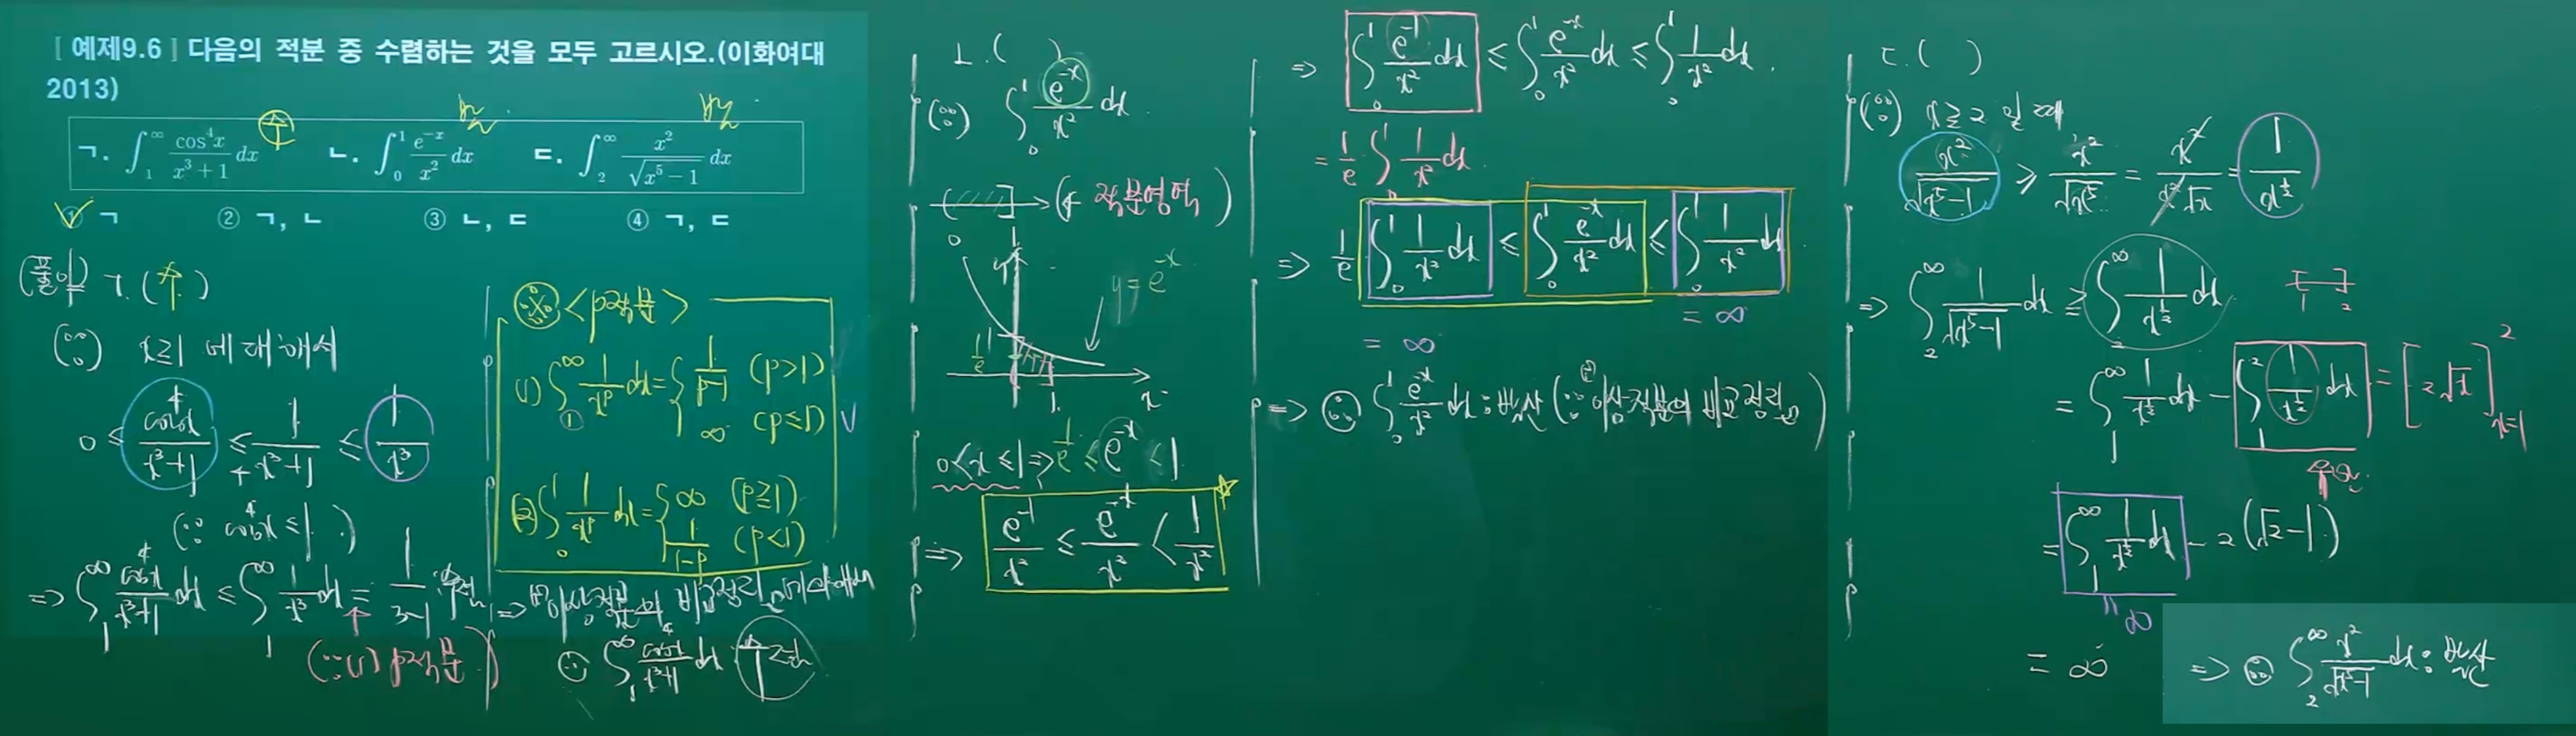 [ 예제9.6 ] 다음의 적분 중 수렴하는 것을 모두 고르시오.(이화여대
2013)
ㄱ. ∫_1^∞ cos⁴x/(x³+1) dx 수 ㄴ. ∫_0^1 e^{-x}/x² dx 발 ㄷ. ∫_2^∞ x²/√(x⁵−1) dx 발
① ㄱ ② ㄱ, ㄴ ③ ㄴ, ㄷ ④ ㄱ, ㄷ
(풀이) ㄱ. (수)
(∵) x≥1 에 대해서
0 ≤ cos⁴x/(x³+1) ≤ 1/(x³+1) ≤ 1/x³
(∵ cos⁴x ≤ 1)
=> ∫_1^∞ cos⁴x/(x³+1) dx ≤ ∫_1^∞ 1/x³ dx = 1/(3−1) : 수렴
(∵(1) p적분)
※ <p적분>
(1) ∫_1^∞ 1/x^p dx = { 1/(p−1) (p>1)
∞ (p≤1)
(2) ∫_0^1 1/x^p dx = { ∞ (p≥1)
1/(1−p) (p<1)
=> 이상적분의 비교정리에 의해서
∴ ∫_1^∞ cos⁴x/(x³+1) dx : 수렴
ㄴ. ( )
(∵) ∫_0^1 e^{-x}/x² dx
0 1 (← 적분영역)
y
y = e^{-x}
1
1/e
1
x
0<x≤1 => 1/e ≤ e^{-x} < 1
=> e^{-1}/x² ≤ e^{-x}/x² < 1/x²
=> ∫_0^1 e^{-1}/x² dx ≤ ∫_0^1 e^{-x}/x² dx ≤ ∫_0^1 1/x² dx.
= 1/e ∫_0^1 1/x² dx
=> 1/e ∫_0^1 1/x² dx ≤ ∫_0^1 e^{-x}/x² dx ≤ ∫_0^1 1/x² dx
= ∞ = ∞
=> ∴ ∫_0^1 e^{-x}/x² dx : 발산 (∵ 이상적분의 비교정리)
ㄷ. ( )
(∵) x≥2 일 때
x²/√(x⁵−1) ≥ x²/√x⁵ = x²/(x²√x) = 1/x^{1/2}
=> ∫_2^∞ 1/√(x⁵−1) dx ≥ ∫_2^∞ 1/x^{1/2} dx
1 2
= ∫_1^∞ 1/x^{1/2} dx − ∫_1^2 1/x^{1/2} dx = [2√x]_{x=1}^2
= ∫_1^∞ 1/x^{1/2} dx − 2(√2−1)
∞
= ∞
=> ∴ ∫_2^∞ x²/√(x⁵−1) dx : 발산